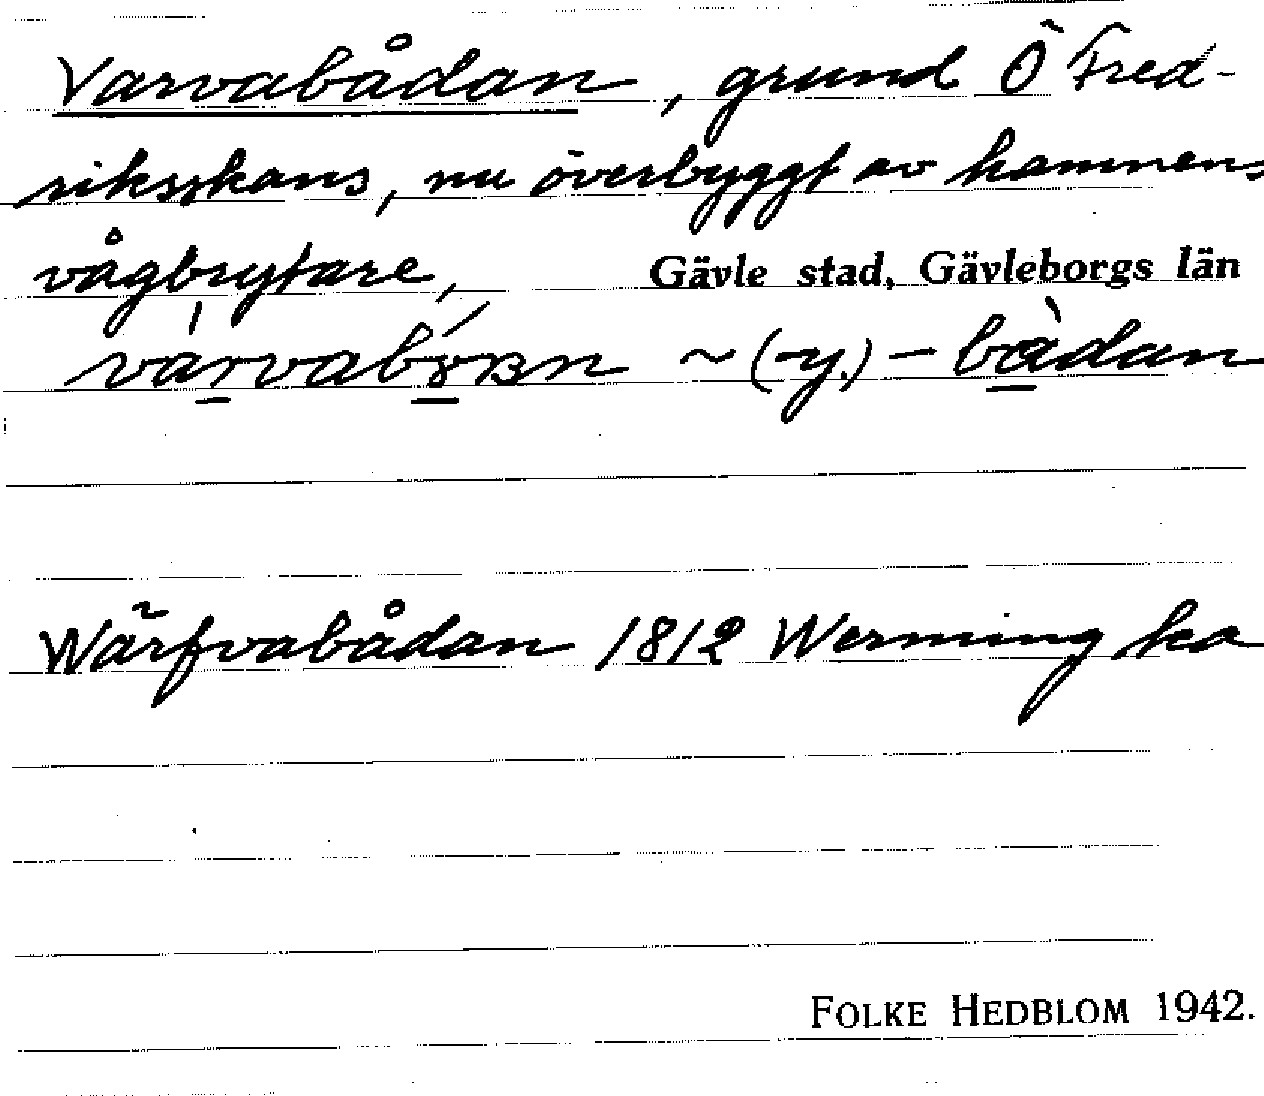 Varvabådan, grund Ö Fred-
riksskans, nu överbyggt av hamnens
vågbrytare, Gävle stad, Gävleborgs län
~ (-y.) - bàdan
Wärfvabådan 1812 Werming ka
FOLKE HEDBLOM 1942.